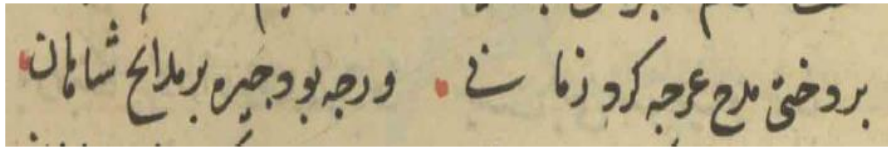 بروختی مدح عرجه کرو زمانے ورجه بو وجیره بر مدائح شاهان